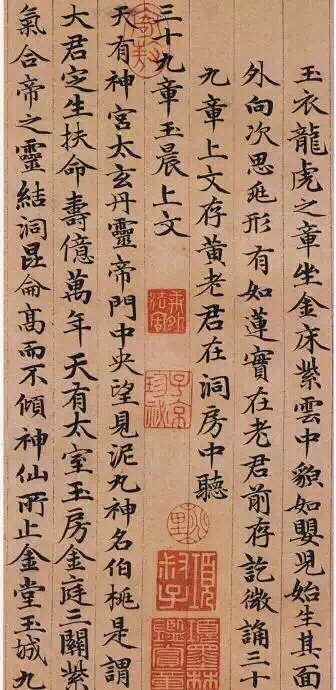 玉衣龍虎之章坐金床紫雲中貌如嬰兒始生其面
外向次思兆形有如蓮實在老君前存訖微誦三十
九章上文存黃老君在洞房中聽
三十九章玉晨上文
天有神宮太玄丹靈帝門中央望見泥丸神名伯桃是謂
大君定生扶命壽億萬年天有太室玉房金庭三關紫
氣合帝之靈結洞昆侖高而不傾神仙所止金堂玉城九
子京珍秘
項叔子
項墨林鑑賞章